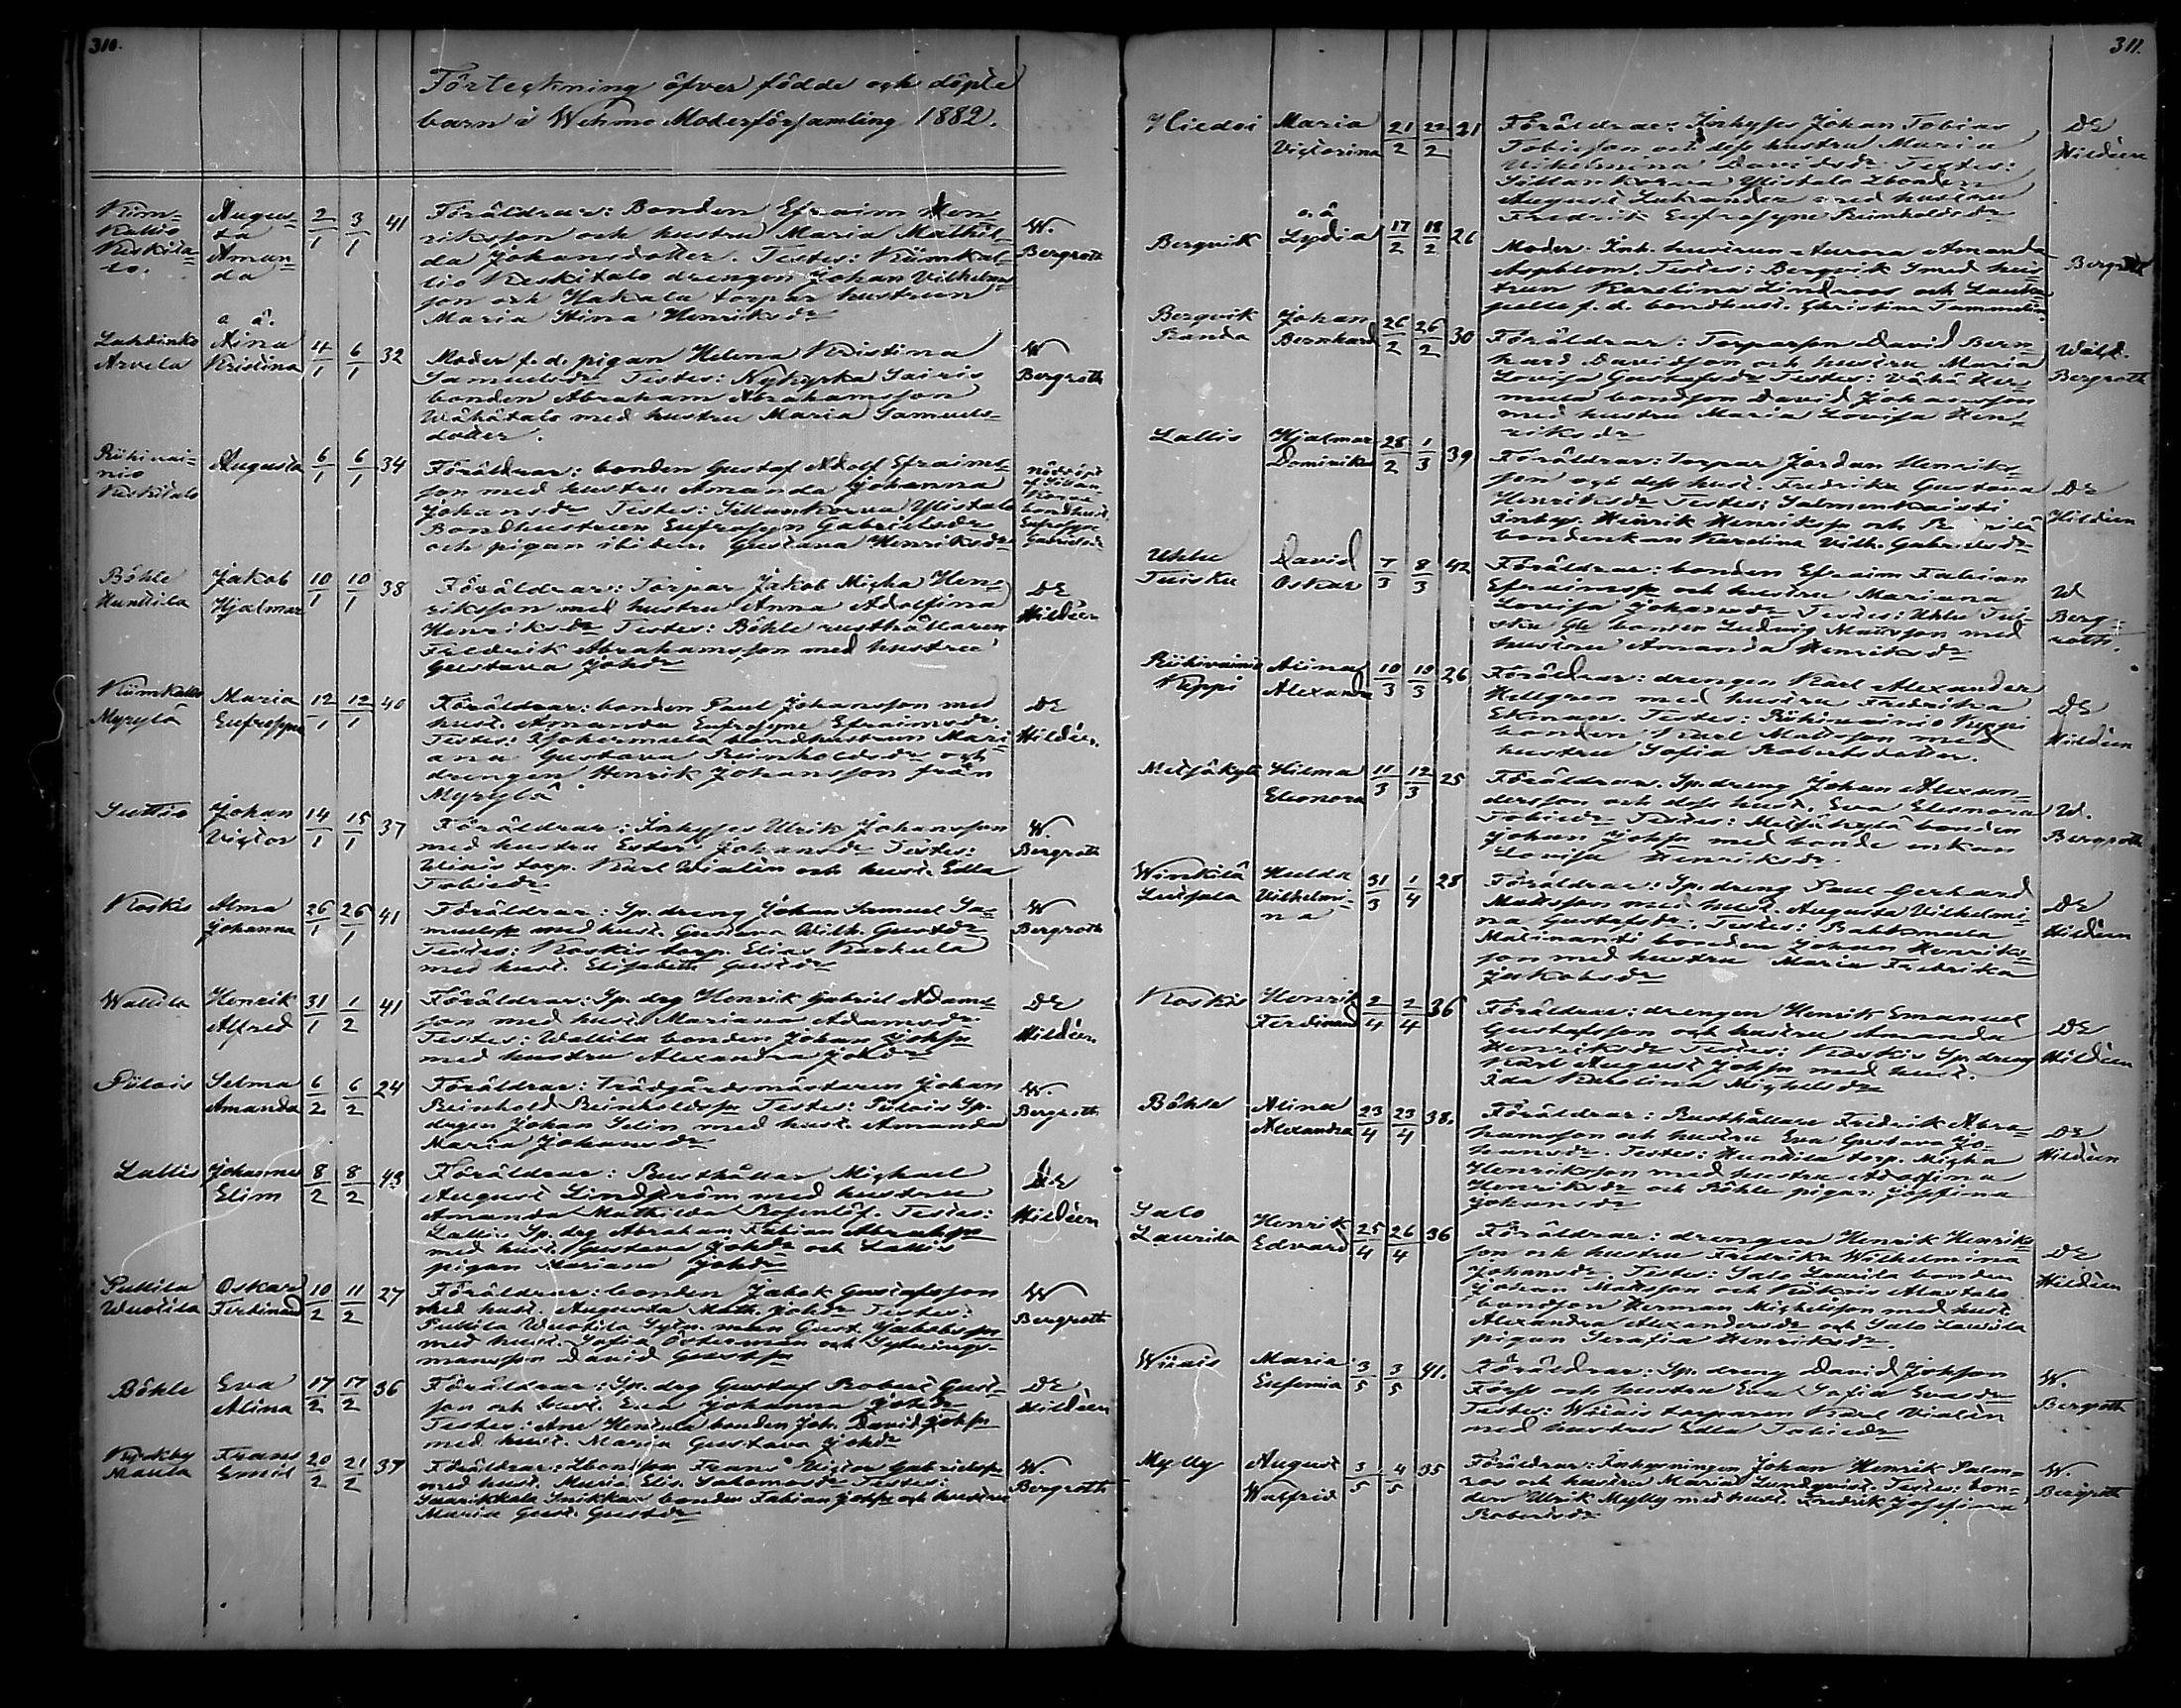 310.
Förteckning öfver födde och döpte
barn i Wehmo Moderförsamling 1882.
Augus-
ta
Aman-
da
2/1 3/1 41
Föräldrar: Bonden Efraim Hen-
riksson och hustru Maria Mathil-
da Johansdotter. Testes: Kiimkal-
lio Keskitalo drengen Johan Vilhelms-
son och Hakala torpar hustrun
Maria Stina Henriksdr
W.
Bergroth
Lahdinko
Arvela
o ä.
Aina
Kristina
4/1 6/1 32
Moder f. d. pigan Helena Kristina
Samuelsdr Testes: Nykyrka Sairis
bonden Abraham Abrahamsson
Wähätalo med hustru Maria Samuels-
dotter.
W
Bergroth
Riihivai-
nio
Keskitalo
Augusta
6/1 6/1 34
Föräldrar: bonden Gustaf Adolf Efraims-
son med hustru Amanda Johanna
Johansdr Testes: Sillankorva Ylistalo
Bondhustrun Eufrosyn Gabrielsdr
och pigan ibidem Gustava Henriksdr
nöddöpt
af Sillan-
korva
bondhust.
Eufrosyne
Gabrielsdr
Böhle
Hunttila
Jakob
Hjalmar
10/1 10/1 38
Föräldrar: Torpar Jakob Micha Hen-
riksson med hustru Anna Adolfina
Henriksdr Testes: Böhle rusthållaren
Fredrik Abrahamsson med hustru
Gustava Johdr
DE
Hildéen
Kiimkallio
Myrylä
Maria
Eufrosyne
12/1 12/1 40
Föräldrar: bonden Paul Johansson med
hust. Amanda Eufrosyne Efraimsdr.
Testes: bondhustrun Mari-
ana Gustava Reinholdsdr och
drengen Henrik Johansson från
Myrylä
DE
Hildéen.
Johan
Victor
14/1 15/1 37
Föräldrar: Inhyses Ulrik Johansson
med hustru Ester Johansdr Testes:
Wiiais torp. Karl Wialén och hust. Edla
Tobiedr
W.
Bergroth
Koskis
Alma
Johanna
26/1 26/1 41
Föräldrar: Sp. dreng Johan Samuel Sa-
muelsp med hust. Gustava Wilh. Gustdr
Testes: Koskis torp. Elias Karkula
med hust. Elisabeth Gustdr
W
Bergroth
Wallila
Henrik
Alfred
31/1 1/2 41
Föräldrar: Sp. drg Henrik Gabriel Adams-
son med hust. Mariana Adamsdr
Testes: Wallila bonden Johan Johsn
med hustru Alexandra Johdr
DE
Hildéen.
Piilois
Selma
Amanda
6/2 6/2 24
Föräldrar: Trädgårdsmästaren Johan
Reinhold Reinholdsn Testes: Piilois Sp.
dregen Johan Selin med hust. Amanda
Maria Johansdr
W.
Bergroth
Lallis
Johannes
Elim
8/2 8/2 43
Föräldrar: Rusthållar Michael
August Lindström med hustru
Amanda Mathilda Rosenlöf. Testes:
Lallis Sp. drg Abraham Fabian Abrahsn
med hust. Gustava Johdr och Lallis
pigan Mariana Johdr
DE
Hildéen
Puttila
Wuotila
Oskar
Ferdinand
10/2 11/2 27
Föräldrar: bonden Jakob Gustafsson
med hust. Augusta Math. Johdr Testes:
Puttila Wuotila Sytn. man Gust. Jakobsn
med hust. Sofia Österman och Sytnings-
mansson David Gustsn
W
Bergroth
Böhle
Eva
Alina
17/2 17/2 36
Föräldrar: Sp. drg Gustaf Robert Gust-
son och hust. Eva Johanna Johdr
Testes: Ane Heikula bonden Joh. David Johsn
med hust. Maria Gustava Johdr
DE
Hildéen
Kyrkby
Maula
Frans
Emil
20/2 21/2 37
Föräldrar: Lbonson Frans Victor Gabrielsp
med hust. Maria Elis. Salomosdr Testes:
Saarikkala Snikkar bonden Fabian Johsn och hustru
Maria Gust. Gustdr
W.
Bergroth
311.
Hiedoi
Maria
Victorina
21/2 22/2 21
Föräldrar: Inhyses Johan Tobias
Tobiesson och dess hustru Maria
Vilhelmina Davidsdr Testes:
Sillankorva Ylistalo Lbonden
August Lukander med hustru
Fredrik Eufrosyne Reinholdsdr
DE
Hildéen
Bergvik
o. ä
Lydia
17/2 18/2 26
Moder. Inh. hustrun Aurora Amanda
Aspblom. Testes: Bergvik Smed hus-
trun Karolina Lindroos och
f. d. bondhust. Christina
Bergroth
Bergvik
Randa
Johan
Bernhard
26/2 26/2 30
Föräldrar: Torparson David Bern-
hard Davidsson och hustru Maria
Lovisa Gustafsdr Testes: Vähä Her-
mula bondson David Johansson
med hustru Maria Lovisa Hen-
riksdr
Walfr.
Bergroth
Lallis
Hjalmar
Dominikus
28/2 1/3 39
Föräldrar: Torpar Jordan Henriks-
son och dess hust. Fredrika Gustava
Henriksdr Testes: Salmenkaisti
Inhys. Henrik Henriksn och
bondenkan Karolina Vilh. Gabrielsdr
DE
Hildéen
Uhlu
Tuisku
David
Oskar
7/3 8/3 42
Föräldrar: bonden Efraim Fabian
Efraimsp och hustru Mariana
Lovisa Johansdr Testes: Uhlu Tui-
sku Gk bonden Ludvig Mattsson med
hustru Amanda Henriksdr
W
Berg-
roth.
Riihivainio
Keppi
Alina
Alexandra
10/3 10/3 26
Föräldrar: drengen Karl Alexander
Hellgren med hustru Fredrika
Ekman. Testes: Riihivainio Keppi
bonden Karl Mattsson med
hustru Sofia Robertsdotter.
DE
Hildéen
Metsäkylä
Hilma
Eleonora
11/3 12/3 25
Föräldrar. Sp. dreng Johan Alexan-
dersson och dess hust. Eva Eleonora
Tobiedr Testes: Metsäkylä bonden
Johan Johsn med bonde enkan
Lovisa Henriksdr.
W.
Bergroth
Winkilä
Hulda
Vilhelmi-
na
31/3 1/4 28
Föräldrar: Sp. dreng Paul Gerhard
Mattsson med hust. Augusta Vilhelmi-
na Gustafsdr. Testes: Bahkmala
Mälinanti bonden Johan Henriks-
son med hustru Maria Fredrika
Jakobsdr
DE
Hildéen
Koskis
Henrik
Ferdinand
2/4 2/4 36
Föräldrar: drengen Henrik Emanuel
Gustafsson och hustru Amanda
Henriksdr Testes: Koskis Sp. dreng
Karl August Johsn med hust.
Ida Karolina Michelsdr
DE
Hildéen
Böhle
Alina
Alexandra
23/4 23/4 38.
Föräldrar: Rusthållare Fredrik Abra-
hamsson och hustru Eva Gustava Jo-
hansdr. Testes: Hunttila torp. Micha
Henriksson med hustru Adolfina
Henriksdr och Böhle pigan Josefina
Johansdr
DE
Hildéen
Salo
Laurila
Henrik
Edvard
25/4 26/4 36
Föräldrar: drengen Henrik Henriks-
son och hustru Fredrika Wilhelmina
Johansdr. Testes: Salo Laurila bonden
Johan Mattsson och Rükois Alastalo
bondson Herman Michelsson med hust.
Alexandra Alexandersdr och Salo Laurila
pigan Serafia Henriksdr.
DE
Hildéen
Wiiais
Maria
Eufemia
3/5 3/5 41.
Föräldrar: Sp. dreng David Johsson
Forss och hustru Eva Sofia Evasdr
Testes: Wiiais torparen Karl Vialén
med hustru Edla Tobiedr
W.
Bergroth
Mylly
August
Walfrid
3/5 4/5 35
Föräldrar: Inhysningen Johan Henrik Palm-
ros och hustru Maria Lundqvist. Testes: bon-
den Ulrik Mylly med hust. Fredrik Josefina
Robertsdr
W.
Bergroth